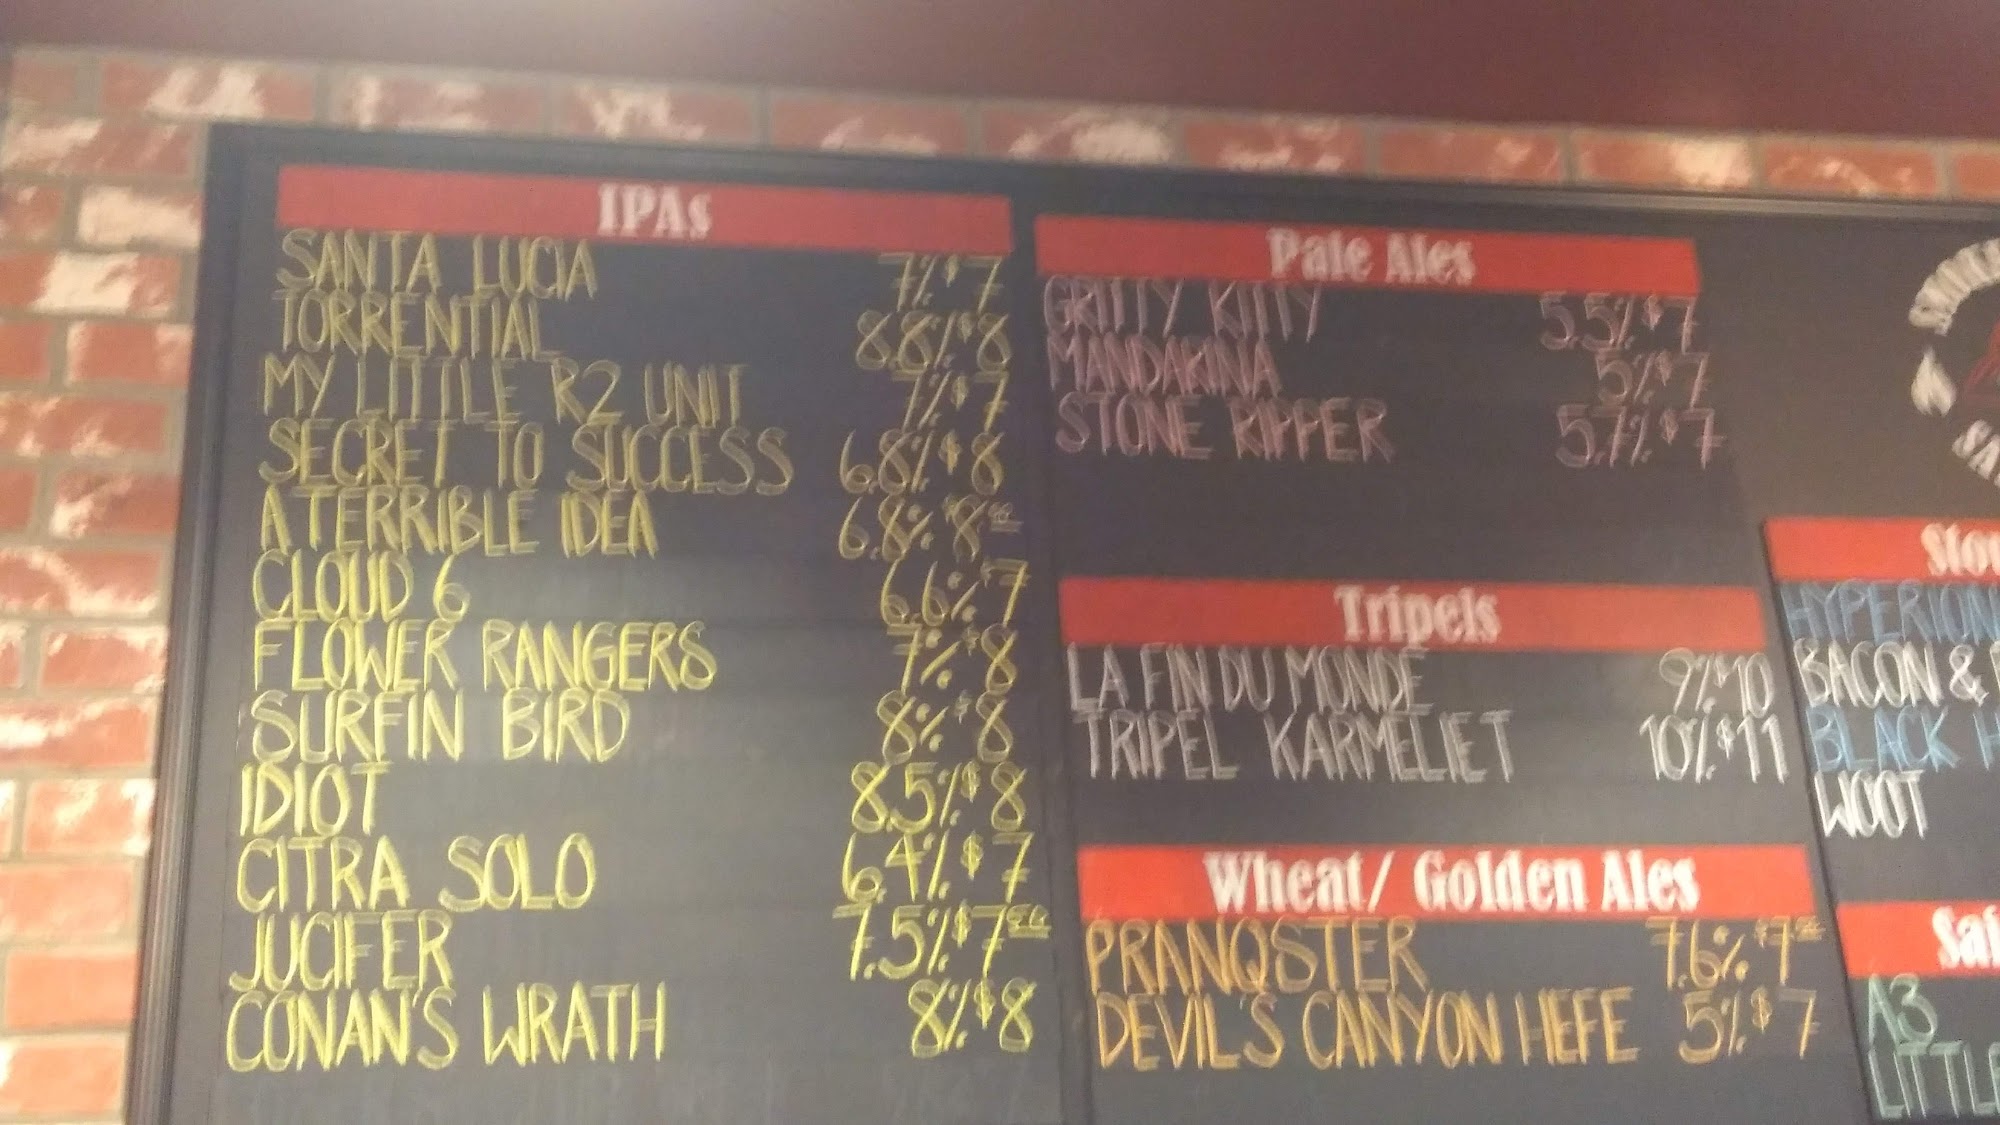 IPAs
SANTA LUCIA 7% $7
TORRENTIAL 8.8% $8
MY LITTLE R2 UNIT 7% $7
SECRET TO SUCCESS 6.8% $8
A TERRIBLE IDEA 6.8% $8
CLOUD 6 6.6% $7
FLOWER RANGERS 7% $8
SURFIN BIRD 8% $8
IDIOT 8.5% $8
CITRA SOLO 6.4% $7
JUCIFER 7.5% $7
CONAN'S WRATH 8% $8
Pale Ales
GRITTY KITTY 5.5% $7
MANDAKINA 5% $7
STONE RIPPER 5.7% $7
Tripels
LA FIN DU MONDE 9% $10
TRIPEL KARMELIET 10% $11
Wheat/ Golden Ales
PRANQSTER 7.6% $7
DEVIL'S CANYON HEFE 5% $7
HYPERION
BACON &
BLACK
WOOT
A3